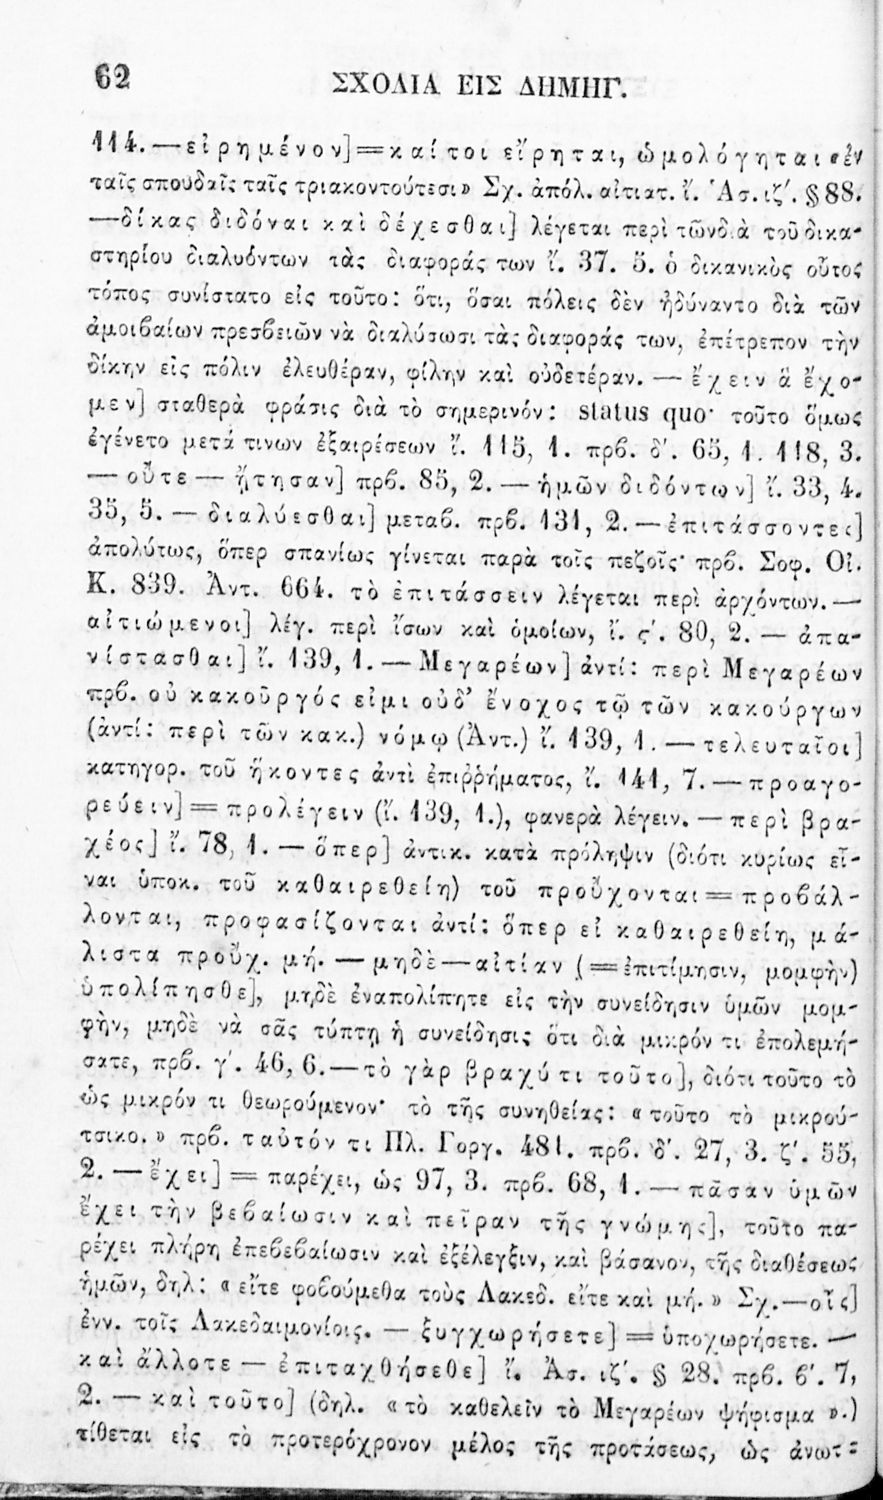 62 ΣΧΟΛΙΑ ΕΙΣ ΔΗΜΗΓ.
114. — εἰρημένον] = καίτοι εἴρηται, ὡμολόγηται «ἐν
ταῖς σπουδαῖς ταῖς τριακοντούτεσι» Σχ. ἀπόλ. αἰτιατ. ἴ. Ἀσ. ιζ´. § 88.
— δίκας διδόναι καὶ δέχεσθαι] λέγεται περὶ τῶν διὰ τοῦ δικα-
στηρίου διαλυόντων τὰς διαφοράς των ἴ. 37. 5. ὁ δικανικὸς οὗτος
τόπος συνίστατο εἰς τοῦτο: ὅτι, ὅσαι πόλεις δὲν ἠδύναντο διὰ τῶν
ἀμοιβαίων πρεσβειῶν νὰ διαλύσωσι τὰς διαφοράς των, ἐπέτρεπον τὴν
δίκην εἰς πόλιν ἐλευθέραν, φίλην καὶ οὐδετέραν. — ἔχειν ἃ ἔχο-
μεν] σταθερὰ φράσις διὰ τὸ σημερινόν: status quo· τοῦτο ὅμως
ἐγένετο μετά τινων ἐξαιρέσεων ἴ. 115, 1. πρβ. δ´. 65, 1. 118, 3.
— οὔτε — ᾔτησαν] πρβ. 85, 2. — ἡμῶν διδόντων] ἴ. 33, 4.
35, 5. — διαλύεσθαι] μεταβ. πρβ. 131, 2. — ἐπιτάσσοντες]
ἀπολύτως, ὅπερ σπανίως γίνεται παρὰ τοῖς πεζοῖς· πρβ. Σοφ. Οἰ.
Κ. 839. Ἀντ. 664. τὸ ἐπιτάσσειν λέγεται περὶ ἀρχόντων. —
αἰτιώμενοι] λέγ. περὶ ἴσων καὶ ὁμοίων, ἴ. ς´. 80, 2. — ἀπα-
νίστασθαι] ἴ. 139, 1. — Μεγαρέων] ἀντί: περὶ Μεγαρέων
πρβ. οὐ κακοῦργός εἰμι οὐδ’ ἔνοχος τῷ τῶν κακούργων
(ἀντί: περὶ τῶν κακ.) νόμῳ (Ἀντ.) ἴ. 139, 1. — τελευταῖοι]
κατηγορ. τοῦ ἥκοντες ἀντὶ ἐπιῤῥήματος, ἴ. 141, 7. — προαγο-
ρεύειν] = προλέγειν (ἴ. 139, 1.), φανερὰ λέγειν. — περὶ βρα-
χέος] ἴ. 78, 1. — ὅπερ] ἀντικ. κατὰ πρόληψιν (διότι κυρίως εἶ-
ναι ὑποκ. τοῦ καθαιρεθείη) τοῦ προὔχονται = προβάλ-
λονται, προφασίζονται ἀντί: ὅπερ εἰ καθαιρεθείη, μά-
λιστα προὔχ. μή. — μηδὲ — αἰτίαν (= ἐπιτίμησιν, μομφὴν)
ὑπολίπησθε], μηδὲ ἐναπολίπητε εἰς τὴν συνείδησιν ὑμῶν μομ-
φὴν, μηδὲ νὰ σᾶς τύπτῃ ἡ συνείδησις ὅτι διὰ μικρόν τι ἐπολεμή-
σατε, πρβ. γ´. 46, 6. — τὸ γὰρ βραχύ τι τοῦτο], διότι τοῦτο τὸ
ὡς μικρόν τι θεωρούμενον· τὸ τῆς συνηθείας: «τοῦτο τὸ μικρού-
τσικο.» πρβ. ταὐτόν τι Πλ. Γοργ. 481. πρβ. δ´. 27, 3. ζ´. 55,
2. — ἔχει] = παρέχει, ὡς 97, 3. πρβ. 68, 1. — πᾶσαν ὑμῶν
ἔχει τὴν βεβαίωσιν καὶ πεῖραν τῆς γνώμης], τοῦτο πα-
ρέχει πλήρη ἐπεβεβαίωσιν καὶ ἐξέλεγξιν, καὶ βάσανον, τῆς διαθέσεως
ἡμῶν, δηλ: «εἴτε φοβούμεθα τοὺς Λακεδ. εἴτε καὶ μή.» Σχ. — οἷς]
ἐνν. τοῖς Λακεδαιμονίοις. — ξυγχωρήσετε] = ὑποχωρήσετε. —
καὶ ἄλλοτε — ἐπιταχθήσεθε] ἴ. Ἀσ. ιζ´. § 28. πρβ. β´. 7,
2. — καὶ τοῦτο] (δηλ. «τὸ καθελεῖν τὸ Μεγαρέων ψήφισμα».)
τίθεται εἰς τὸ προτερόχρονον μέλος τῆς προτάσεως, ὡς ἀνωτ-